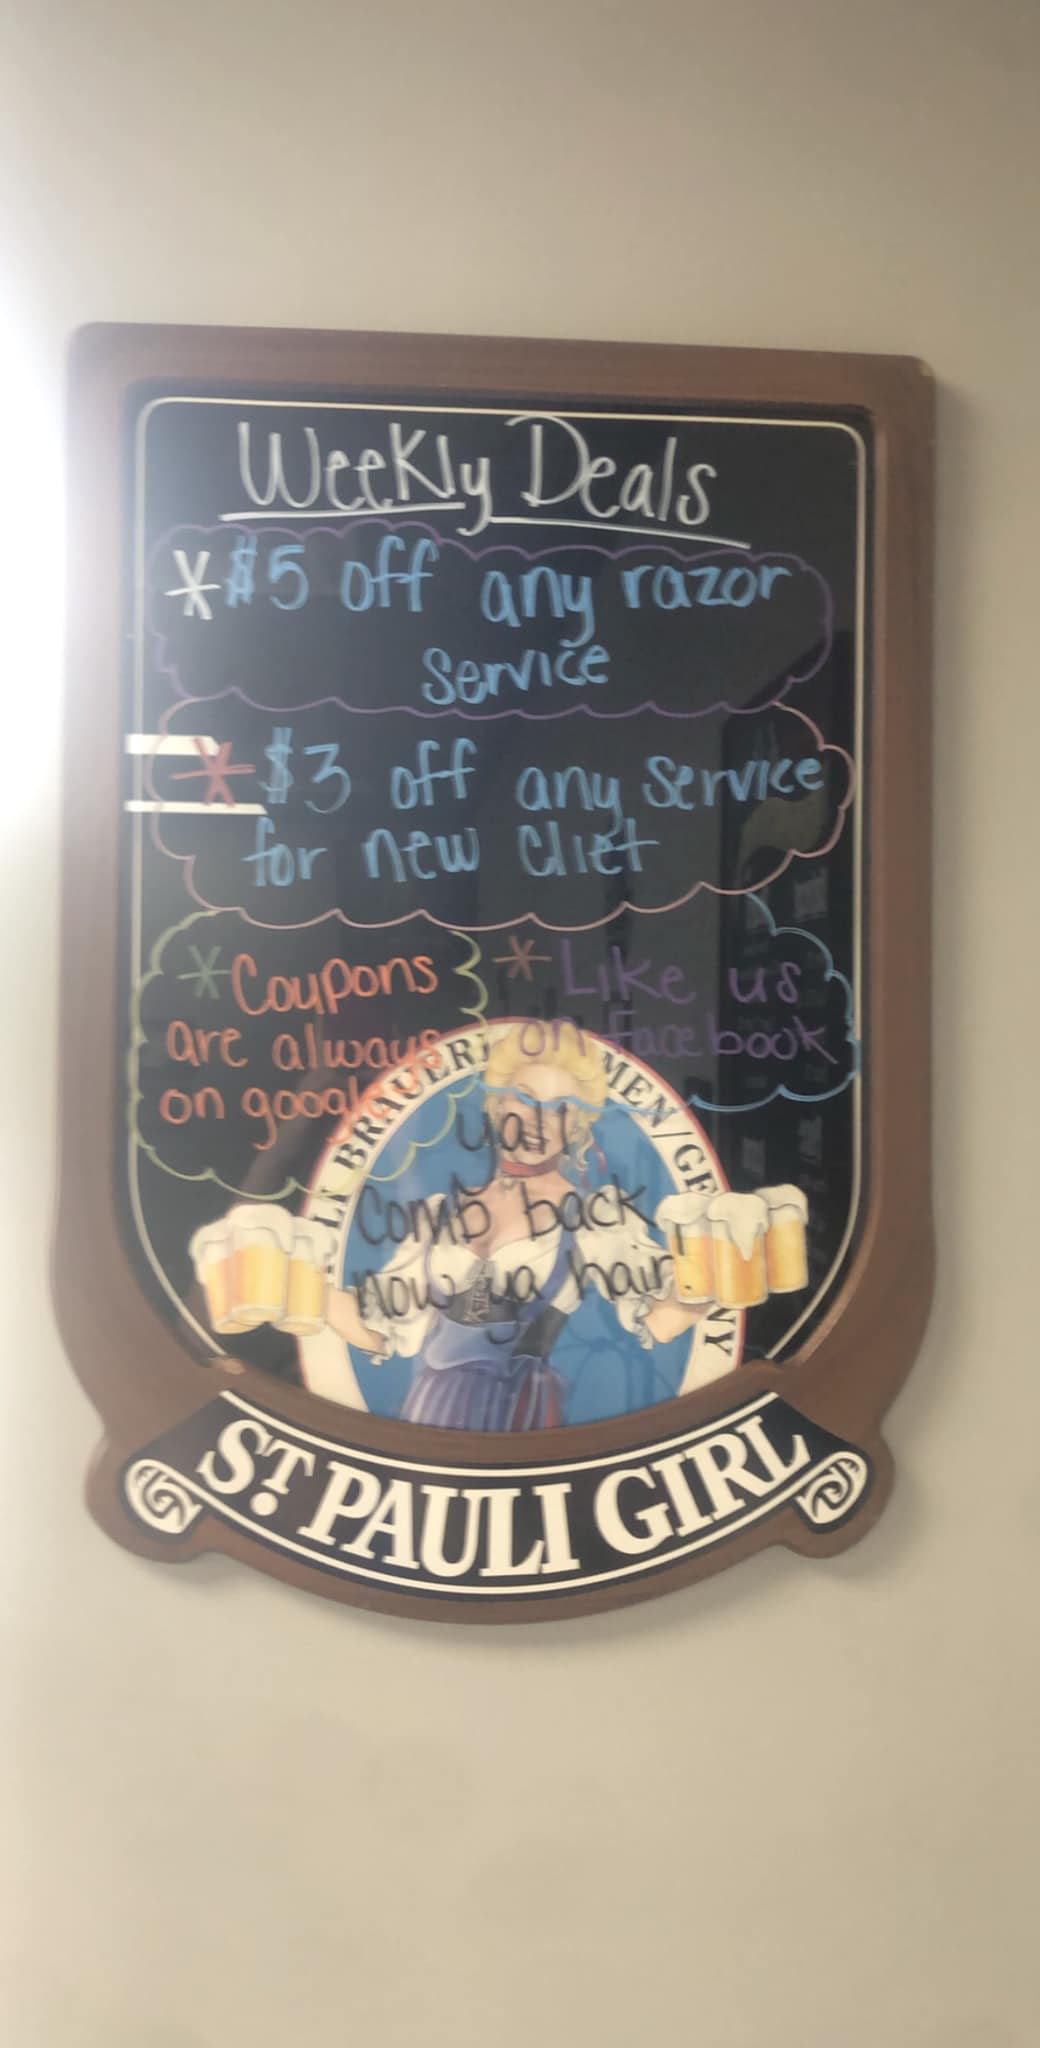 Weekly Deals
*$5 off any razor
service
*$3 off any service
for new cliet
*Coupons
are always
on google
*Like us
on Facebook
yall
Comb back
now ya hair!
LI BRAUERI
MEN/GE
NY
ST. PAULI GIRL